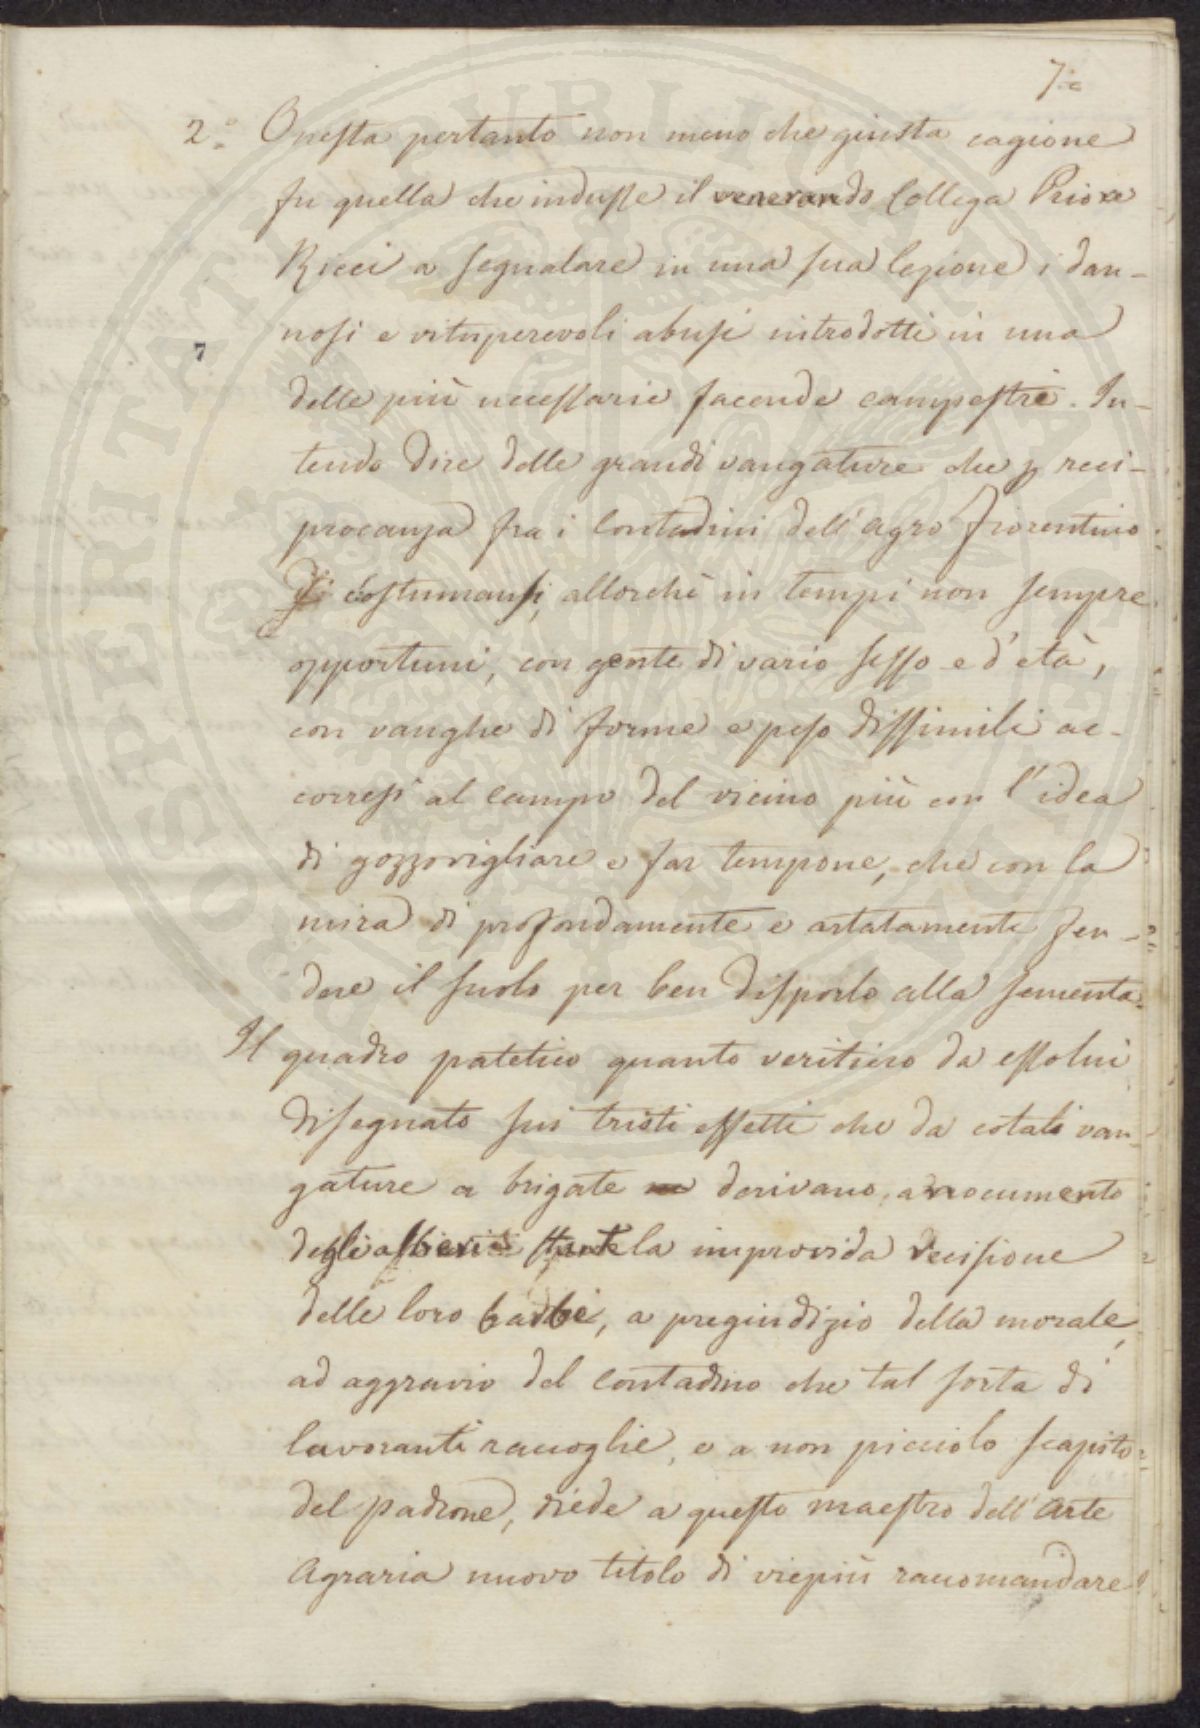 7.e
2.° Onesta pertanto non meno che giusta cagione
fu quella che indusse il venerando Collega Priore
Ricci a segnalare in una sua lezione i dan-
nosi e vituperevoli abusi introdotti in una
7
delle più necessarie facende campestri. In-
tendo dire delle grandi vangature che p reci-
procanza fra i Contadini dell'agro fiorentino
costumansi, allorchè in tempi non sempre
opportuni, con gente di vario sesso e d'età,
con vanghe di forme e peso dissimili ac-
corresi al campo del vicino più con l'idea
di gozzovigliare e far tempone, che con la
mira di profondamente e artatamente fen-
dere il suolo per ben disporlo alla sementa.
Il quadro patetico quanto veritiero da essolui
disegnato sui tristi effetti che da cotali van-
gature a brigate derivano, a nocumento
degli alberi la improvida recisione
delle loro barbe, a pregiudizio della morale,
ad aggravio del contadino che tal sorta di
lavoranti raccoglie, e a non picciolo scapito
del padrone, diede a questo maestro dell'Arte
Agraria nuovo titolo di viepiù raccomandare
PROSPERITATI PUBLICAE